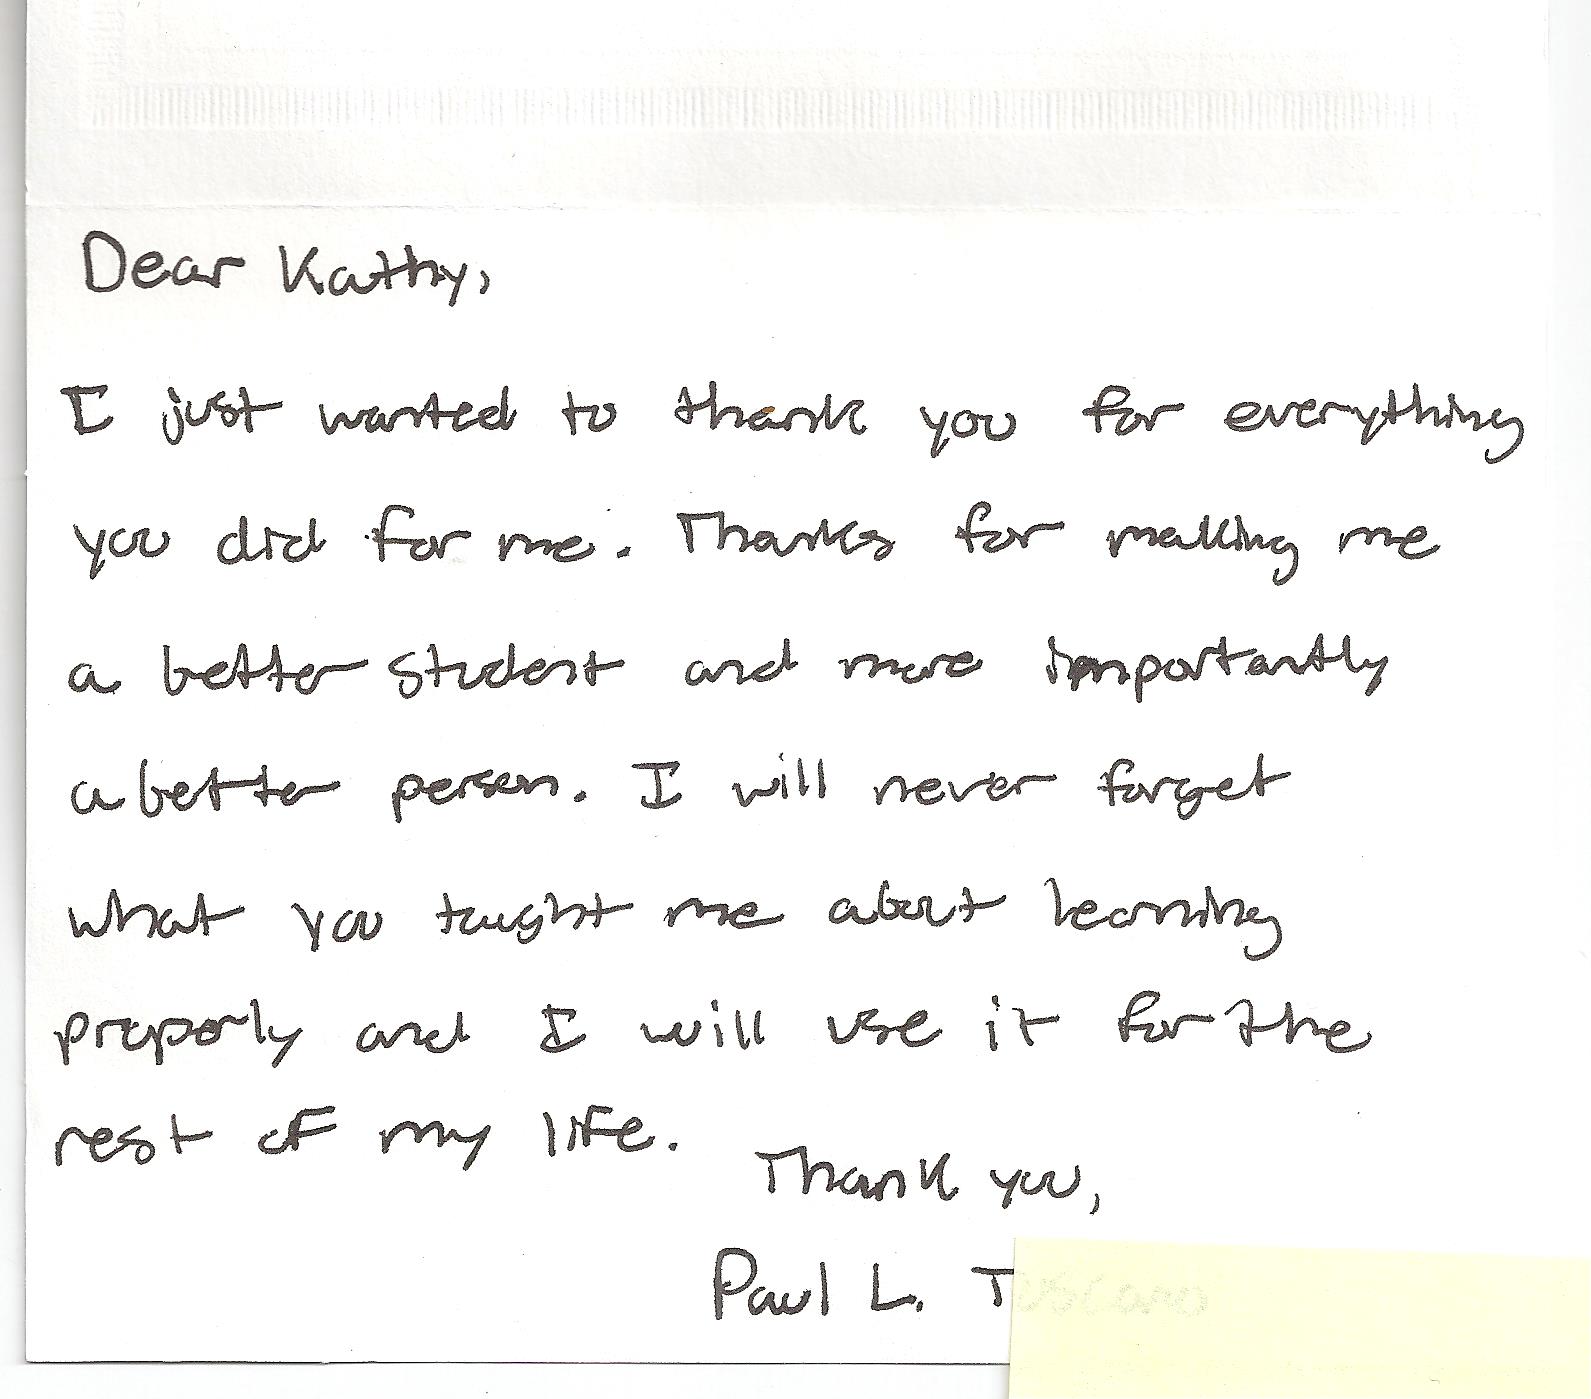 Dear Kathy,
I just wanted to thank you for everything
you did for me. Thanks for making me
a better student and more importantly
a better person. I will never forget
what you taught me about learning
properly and I will use it for the
rest of my life.
Thank you,
Paul L. T